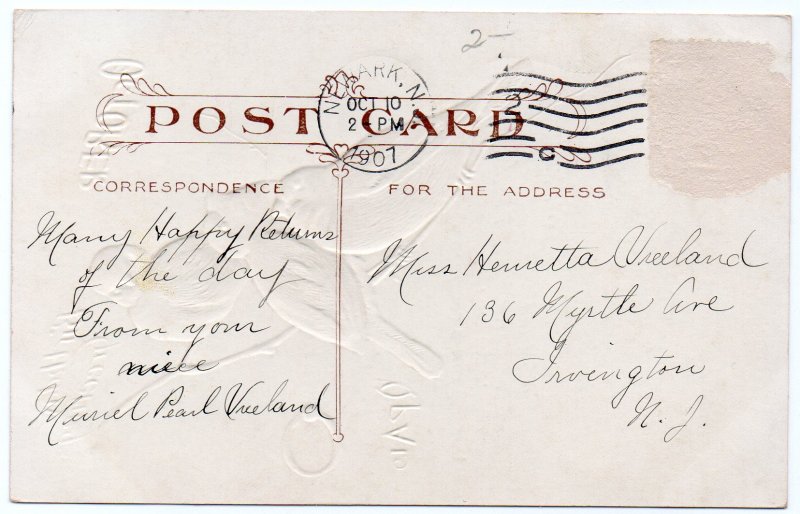 2-
POST CARD
NEWARK, N.
OCT 10
2 PM
1907
C
CORRESPONDENCE
FOR THE ADDRESS
Many Happy Returns
of the day
From your
niece
Muriel Pearl Vreeland
Miss Henretta Vreeland
136 Myrtle Ave
Irvington
N. J.